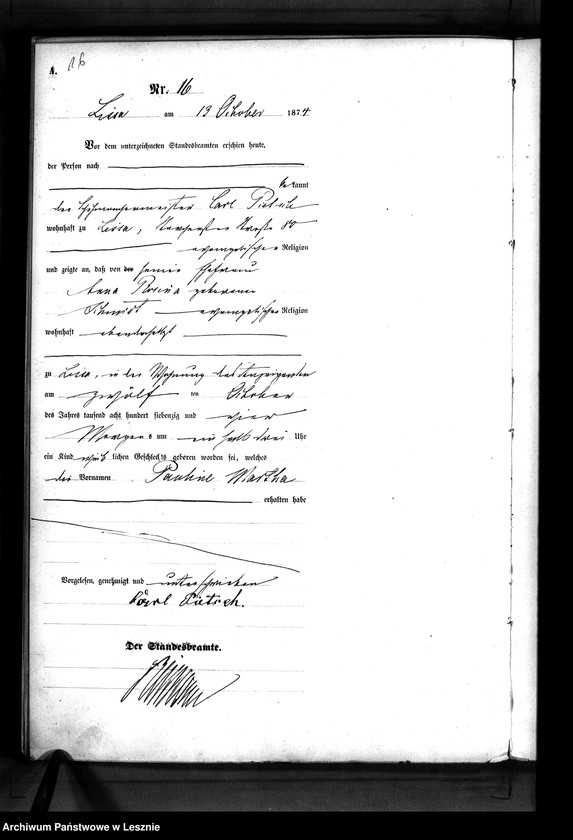 A.
16
Nr. 16
Lissa am 13 October 1874
Vor dem unterzeichneten Standesbeamten erschien heute,
der Person nach
bekannt
der Carl Pietsch
wohnhaft zu Lissa, Straße 80
evangelischer Religion
und zeigte an, daß von seiner Ehefrau
Anna Rosina geborenen
Schmidt evangelischer Religion
wohnhaft ebendaselbst
zu Lissa, in der Wohnung des Anzeigenden
am zwölf ten October
des Jahres tausend acht hundert siebenzig und vier
Morgens um ein halb drei Uhr
ein Kind weiblichen Geschlechts geboren worden sei, welches
die Vornamen Pauline Martha
erhalten habe
Vorgelesen, genehmigt und unterschrieben
Karl Pietsch.
Der Standesbeamte.
Archiwum Państwowe w Lesznie